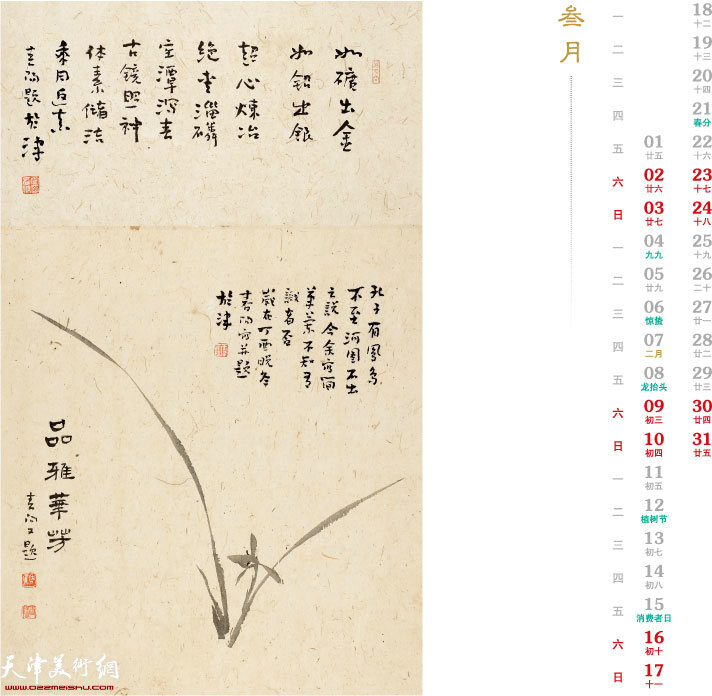 如礦出金
如鉛出銀
超心煉冶
絕愛淄磷
空潭瀉春
古鏡照神
体素儲洁
乘月返真
题於津
孔子有鳳鳥
不至河圖不出
之説今余寫
不知有
識者否
歲在丁酉晚冬
寫并题
於津
品雅華芳
又题
天津美術網
www.022meishu.com
叁月
一 18 十二
二 19 十三
三 20 十四
四 21 春分
五 01 廿五 22 十六
六 02 廿六 23 十七
日 03 廿七 24 十八
一 04 九九 25 十九
二 05 廿九 26 二十
三 06 惊蛰 27 廿一
四 07 二月 28 廿二
五 08 龙抬头 29 廿三
六 09 初三 30 廿四
日 10 初四 31 廿五
一 11 初五
二 12 植树节
三 13 初七
四 14 初八
五 15 消费者日
六 16 初十
日 17 十一